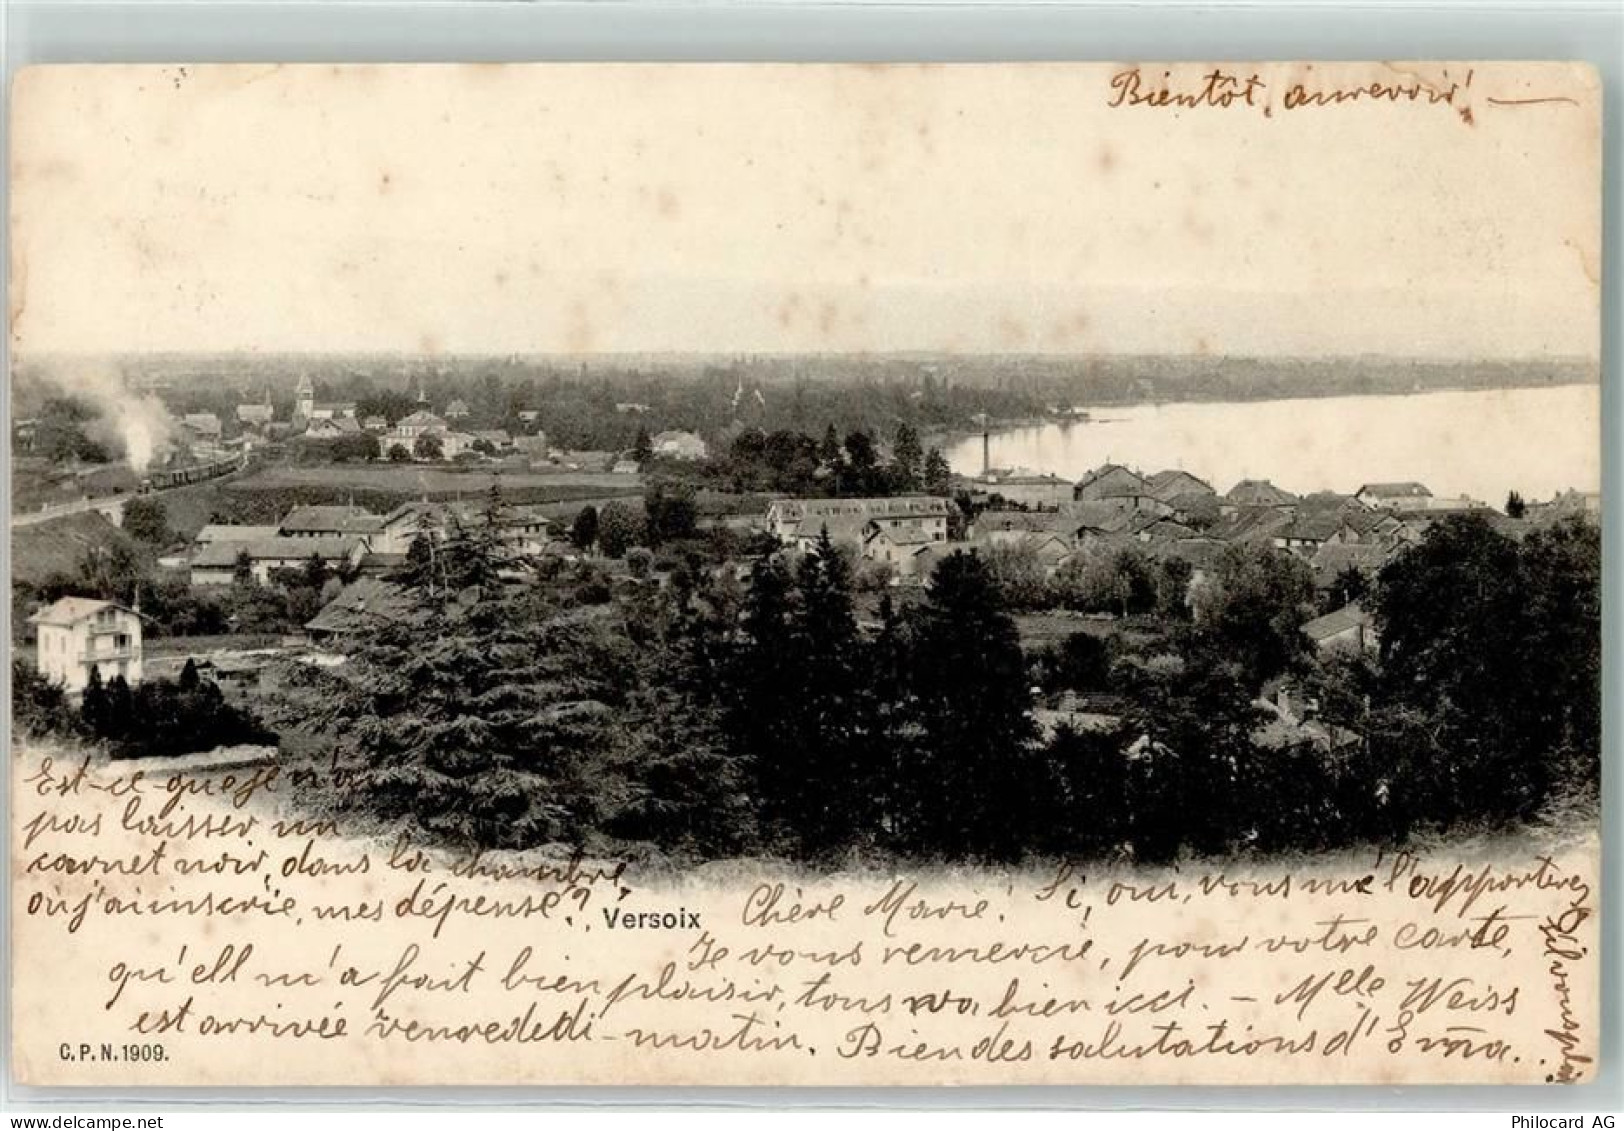 Bientôt, aurevoir! —
Est-ce que je n'ai
pas laisser un
carnet noir, dans la chambre,
où j'ai inscrie, mes dépense?,
Versoix
Chère Marie! Si, oui, vous me l'apporterez
s'il vous plai
Je vous remercie, pour votre carte,
qu'ell m'a fait bien plaisir, tous va bien icci. — Mlle Weiss
est arrivée vendredi-matin. Bien des salutations d'Emma..
C.P.N. 1909.
delcampe.net
Philocard AG